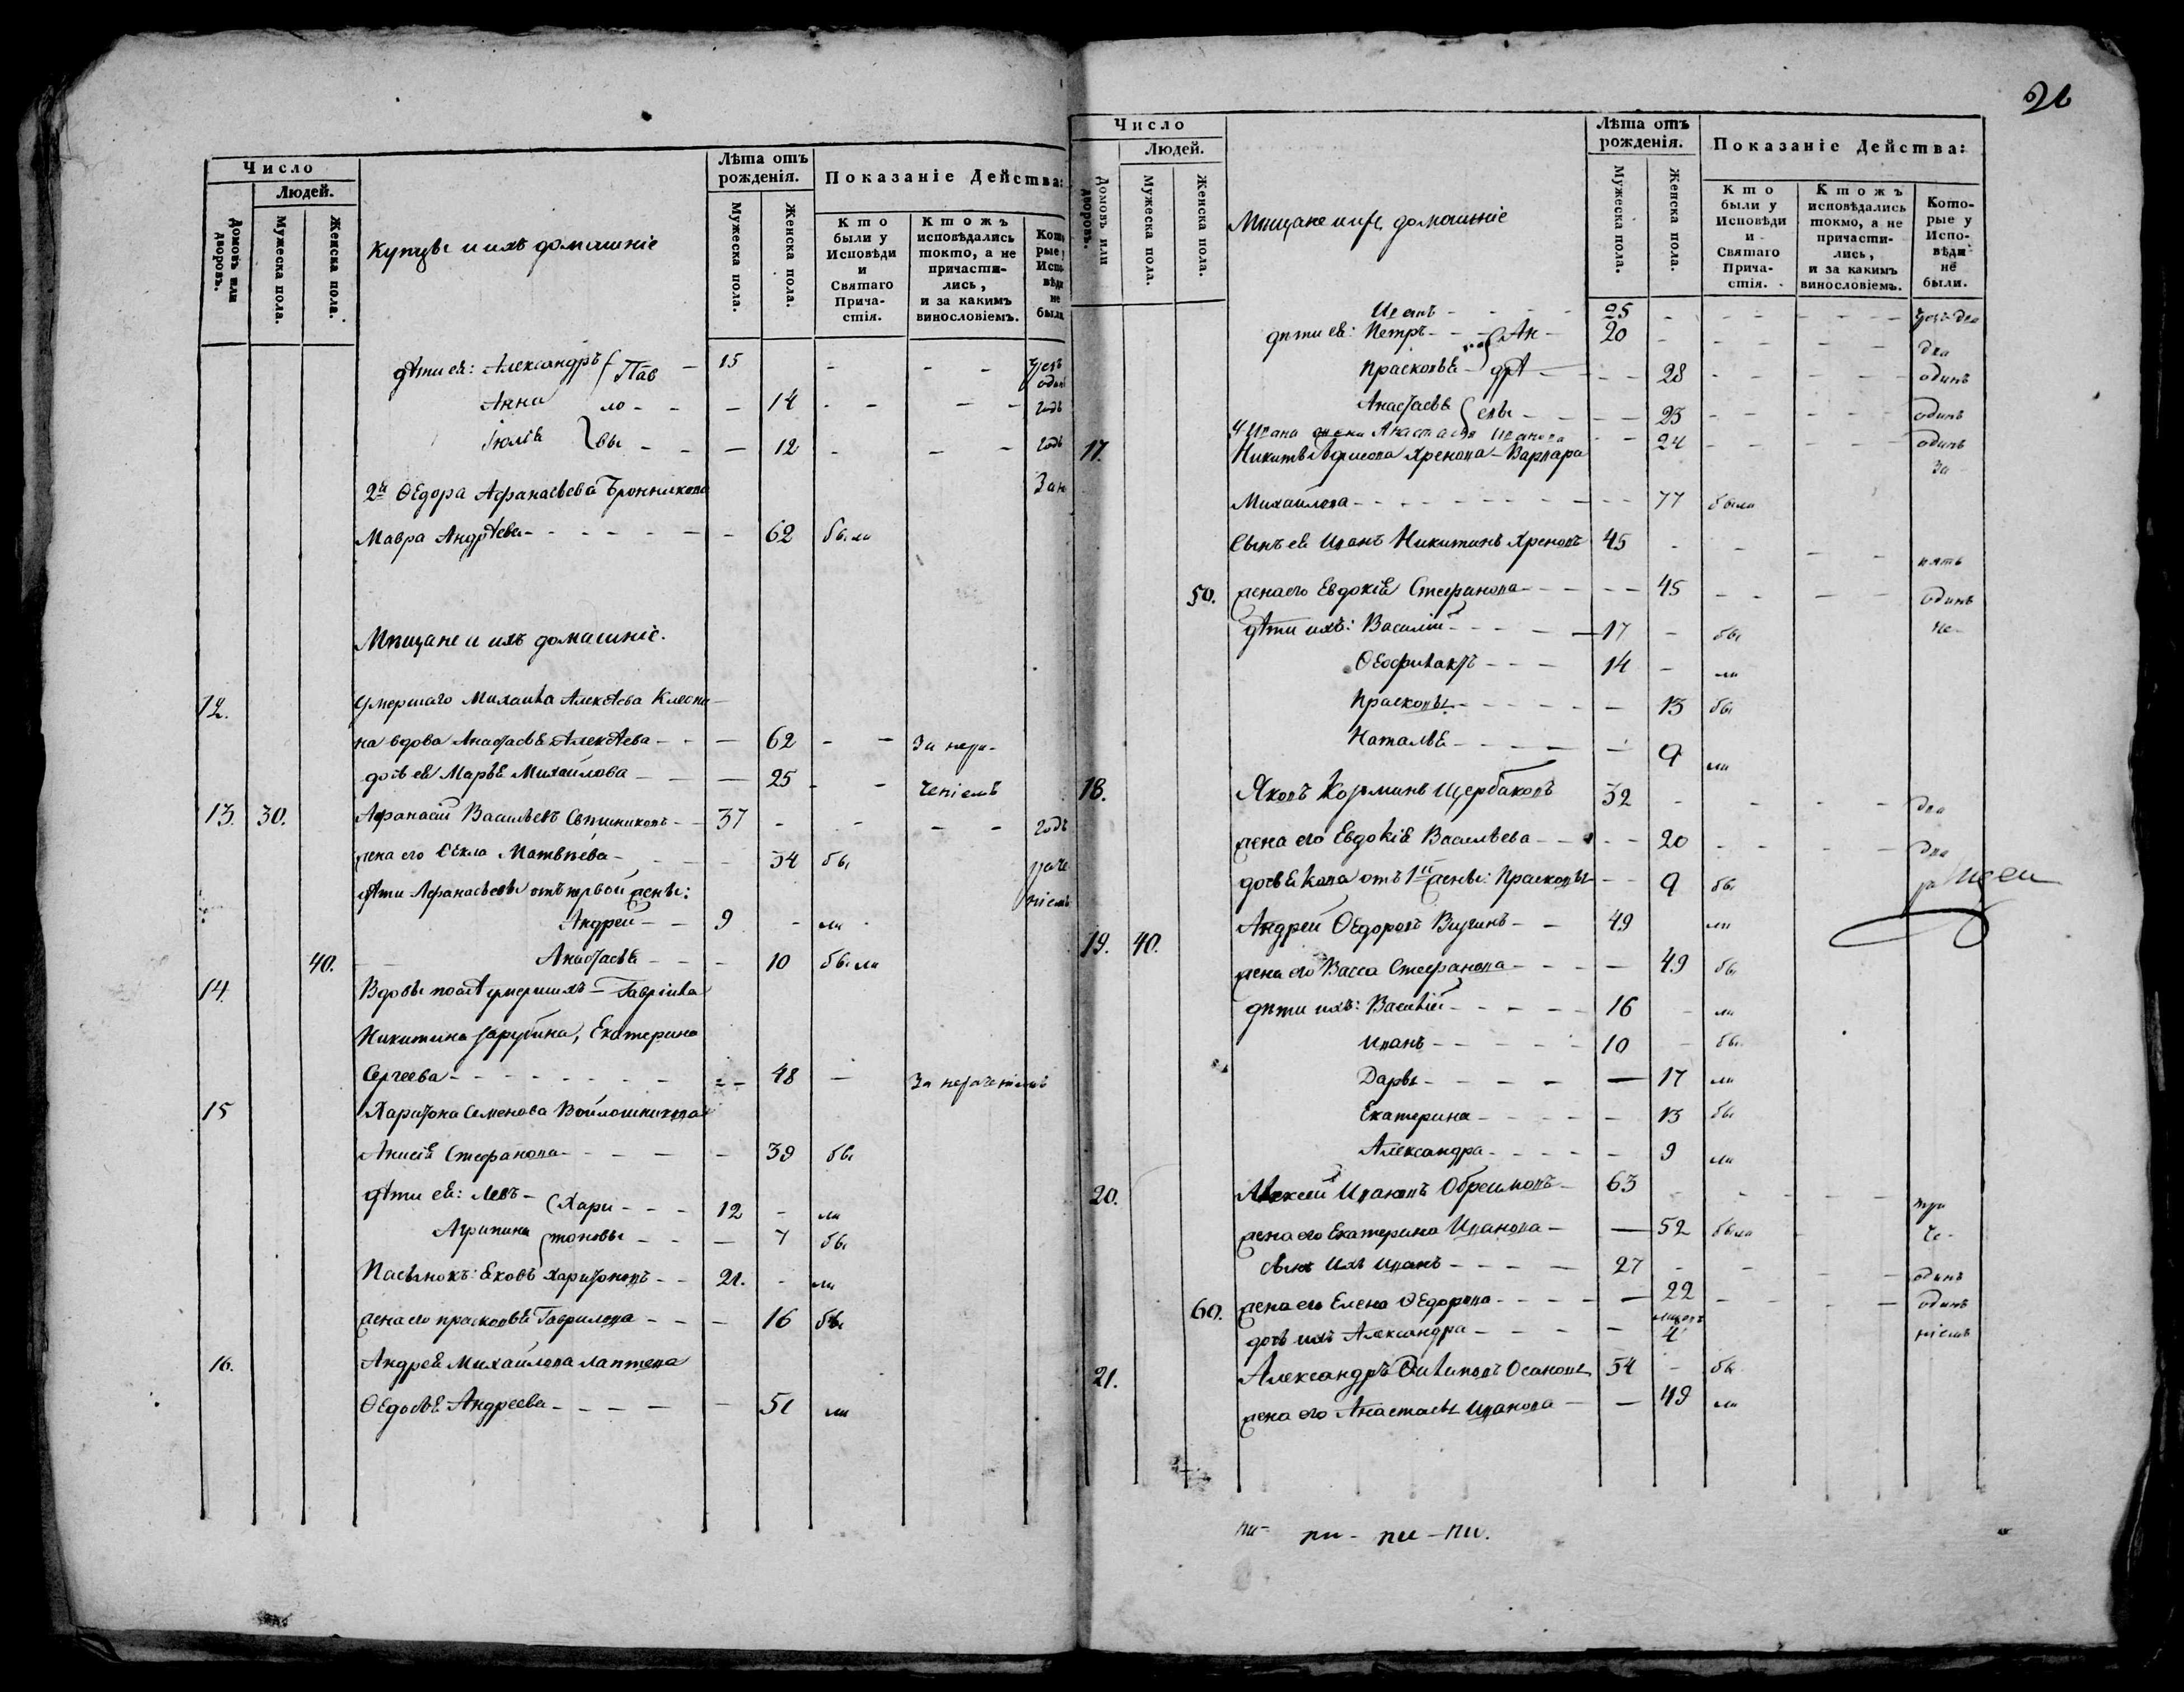 Число
Людей.
Домовъ или дворовъ.
Мужеска пола.
Женска пола.
Купцы и ихъ домашніе
Лѣта отъ рожденія.
Мужеска пола.
Женска пола.
Показаніе Действа:
Кто были у Исповѣди и Святаго Причастія.
Ктожъ исповѣдались токто, а не причастились, и за какимъ винословіемъ.
дѣти ея: Александръ Пав - 15 - - -
Анна ло - - - 14 - - - - годъ
Іюлія вы - - - 12 - - - - годъ
2й Ѳедора Афанасьева Бронникова
Мавра Андрѣева - - - - - - - 62 была
Мѣщане и ихъ домашніе.
12. Умершаго Михаила Алексѣева Клепи-
на вдова Анастасья Алексѣева - - - 62 - - За нера-
дочь ея Марья Михайлова - - - 25 - - ченіемъ
13. 30. Афанасій Васильевъ Свѣшниковъ - - 37 - - - - годъ
жена его Ѳекла Матвѣева - - - 34 бы
дѣти Афанасьевы отъ первой жены:
Андрей - - 9 - ли
40. Анастасья - - - 10 были
14. Вдовы послѣ умершихъ - Гавріила
Никитина Зарубина, Екатерина
Сергеева - - - - - - - - 48 - За нераченіемъ
15 Харитона Семенова Войлошникова
Анисія Стефанова - - - - - 39 бы
дѣти ея: Левъ - Хари - - - 12 - ли
Агрипина тоновы - - - 7 бы
Пасынокъ: Яковъ Харитоновъ - - 21. - ли
жена его Прасковья Гаврилова - - - 16 бы
16. Андрея Михайлова Лаптева
Ѳедосья Андреева - - - - - 51 ли
26
Число
Людей.
Домовъ или дворовъ.
Мужеска пола.
Женска пола.
Мѣщане и ихъ домашніе
Лѣта отъ рожденія.
Мужеска пола.
Женска пола.
Показаніе Действа:
Кто были у Исповѣди и Святаго Причастія.
Ктожъ исповѣдались токмо, а не причастились, и за какимъ винословіемъ.
Которые у Исповѣди не были.
Иванъ - - - - 25 - - - - - -
дѣти ея: Петръ - - - Ан - 20 - - - - - два
Прасковья - дрѣ - - - 28 - - - - - одинъ
Анастасья евы - - - - 23 - - - - - одинъ
У Ивана жена Анастасія Иванова - - 24 - - - - - одинъ
17. Никиты Борисова Хренова - Варвара За
Михайлова - - - - - - - - - 77 была
Сынъ ея Иванъ Никитинъ Хреновъ 45 - - - - пять
50. жена его Евдокія Стефанова - - - - - 45 - - - - одинъ
дѣти ихъ: Василій - - - - 17 - бы не-
Ѳеофилактъ - - - 14 - ли
Прасковья - - - - - - 13 бы
Наталья - - - - - 9 ли
18. Яковъ Козминъ Щербаковъ 32 - - - - два
жена его Евдокія Васильева - - - - 20 - - - - два
дочь Якова отъ 1й жены: Прасковья - - 9 бы
19. 40. Андрей Ѳедоровъ Вичинъ - - 49 ли
жена его Васса Стефанова - - - - 49 бы
дѣти ихъ: Василій - - - - - 16 - ли
Иванъ - - - - - 10 - бы
Дарья - - - - - 17 ли
Екатерина - - - - - 13 бы
Александра - - - - - 9 ли
20. Алексей Ивановъ Обреимовъ - 63 - - - - - три
жена его Екатерина Иванова - - 52 была че-
сынъ ихъ Иванъ - - - - 27 - - - - одинъ
60. жена его Елена Ѳедорова - - - - - 22 - - - - одинъ
дочь ихъ Александра - - - - - 4 ніемъ
21. Александръ Филиповъ Осановъ 54 - бы
жена его Анастасья Иванова - - 49 ли
пи- пи - пи - пи.